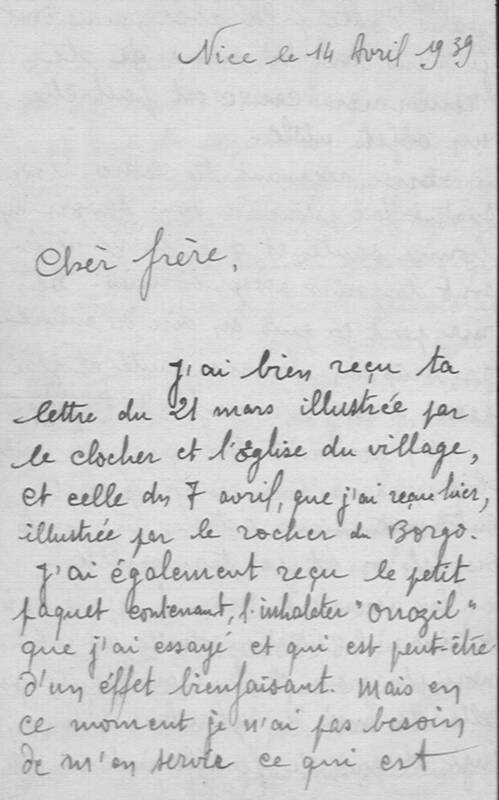 Nice le 14 Avril 1939
Cher frère,
J'ai bien reçu ta
lettre du 21 mars illustrée par
le clocher et l'Eglise du village,
et celle du 7 avril, que j'ai reçue hier,
illustrée par le rocher du Borgo.
J'ai également reçu le petit
paquet contenant, l'inhalater "Onozil"
que j'ai essayé et qui est peut-être
d'un éffet bienfaisant. Mais en
ce moment je n'ai pas besoin
de m'en servir ce qui est